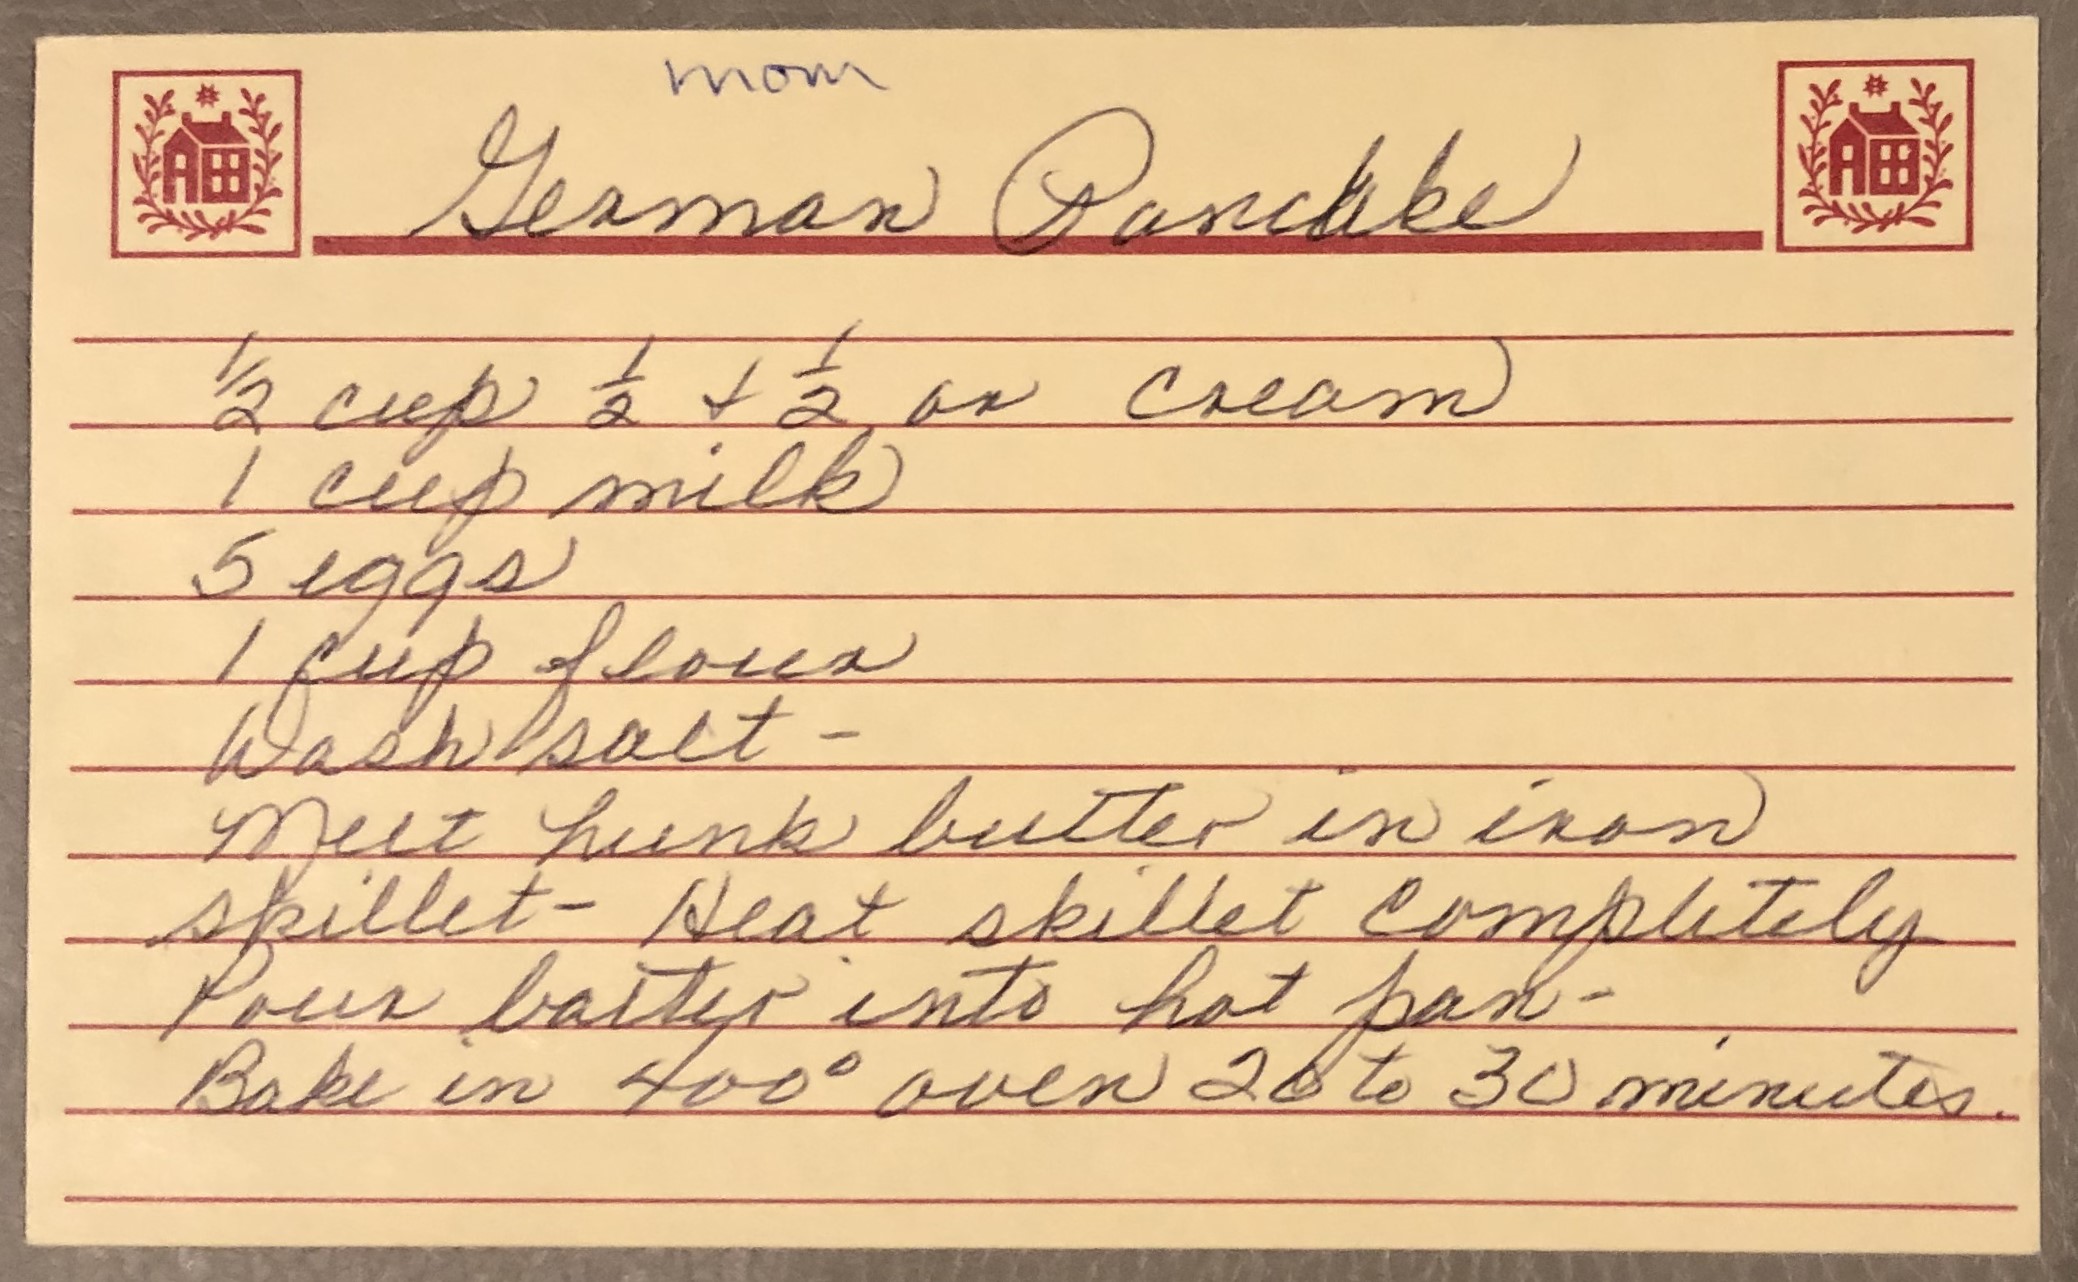 mom
German Pancake
1/2 cup 1/2 + 1/2 or cream
1 cup milk
5 eggs
1 cup flour
Wash salt -
Melt hunk butter in iron
skillet - Heat skillet completely
Pour batter into hot pan -
Bake in 400° oven 20 to 30 minutes.